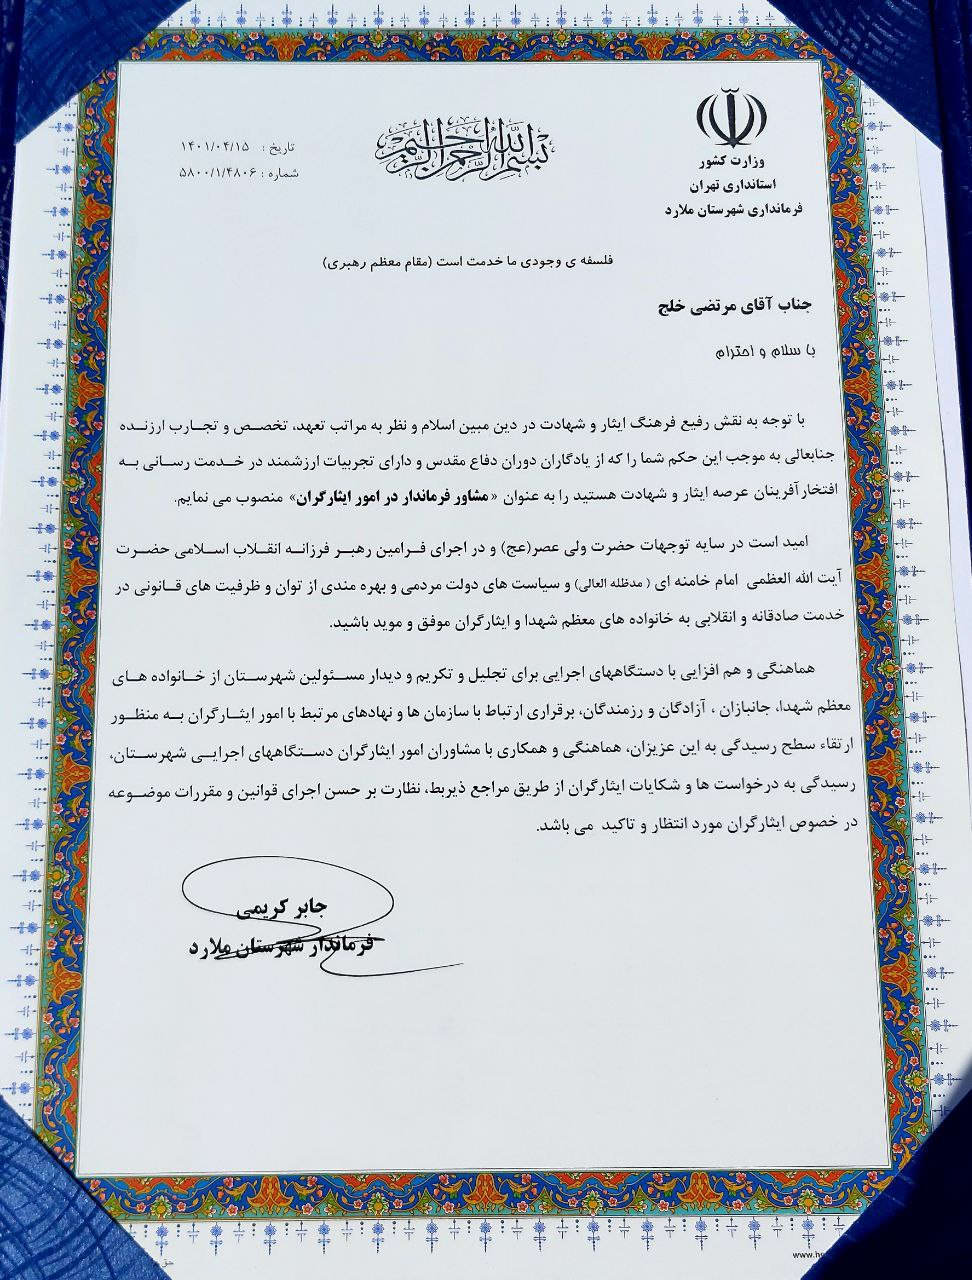 بسم الله الرحمن الرحیم
وزارت کشور
استانداری تهران
فرمانداری شهرستان ملارد
تاریخ : ۱۴۰۱/۰۴/۱۵
شماره : ۵۸۰۰/۱/۴۸۰۶
فلسفه ی وجودی ما خدمت است (مقام معظم رهبری)
جناب آقای مرتضی خلج
با سلام و احترام
با توجه به نقش رفیع فرهنگ ایثار و شهادت در دین مبین اسلام و نظر به مراتب تعهد، تخصص و تجارب ارزنده
جنابعالی به موجب این حکم شما را که از یادگاران دوران دفاع مقدس و دارای تجربیات ارزشمند در خدمت رسانی به
افتخارآفرینان عرصه ایثار و شهادت هستید را به عنوان «مشاور فرماندار در امور ایثارگران» منصوب می نمایم.
امید است در سایه توجهات حضرت ولی عصر(عج) و در اجرای فرامین رهبر فرزانه انقلاب اسلامی حضرت
آیت الله العظمی امام خامنه ای ( مدظله العالی) و سیاست های دولت مردمی و بهره مندی از توان و ظرفیت های قانونی در
خدمت صادقانه و انقلابی به خانواده های معظم شهدا و ایثارگران موفق و موید باشید.
هماهنگی و هم افزایی با دستگاههای اجرایی برای تجلیل و تکریم و دیدار مسئولین شهرستان از خانواده های
معظم شهدا، جانبازان ، آزادگان و رزمندگان، برقراری ارتباط با سازمان ها و نهادهای مرتبط با امور ایثارگران به منظور
ارتقاء سطح رسیدگی به این عزیزان، هماهنگی و همکاری با مشاوران امور ایثارگران دستگاههای اجرایی شهرستان،
رسیدگی به درخواست ها و شکایات ایثارگران از طریق مراجع ذیربط، نظارت بر حسن اجرای قوانین و مقررات موضوعه
در خصوص ایثارگران مورد انتظار و تاکید می باشد.
جابر کریمی
فرماندار شهرستان ملارد